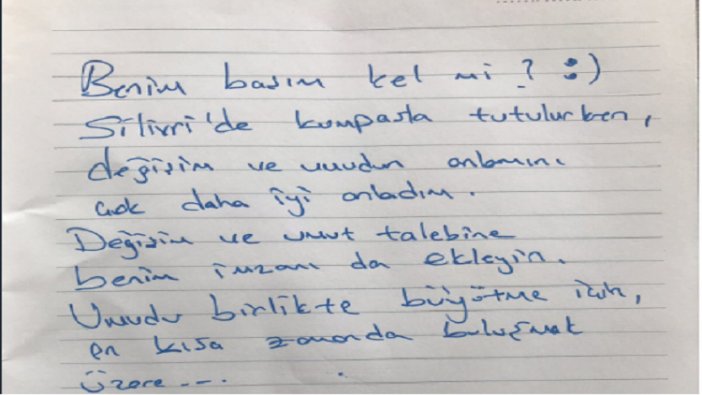 Benim başım kel mi? :)
Silivri'de kumpasla tutulurken,
değişim ve umudun anlamını
çok daha iyi anladım.
Değişim ve umut talebine
benim imzamı da ekleyin.
Umudu birlikte büyütme için,
en kısa zamanda buluşmak
üzere....